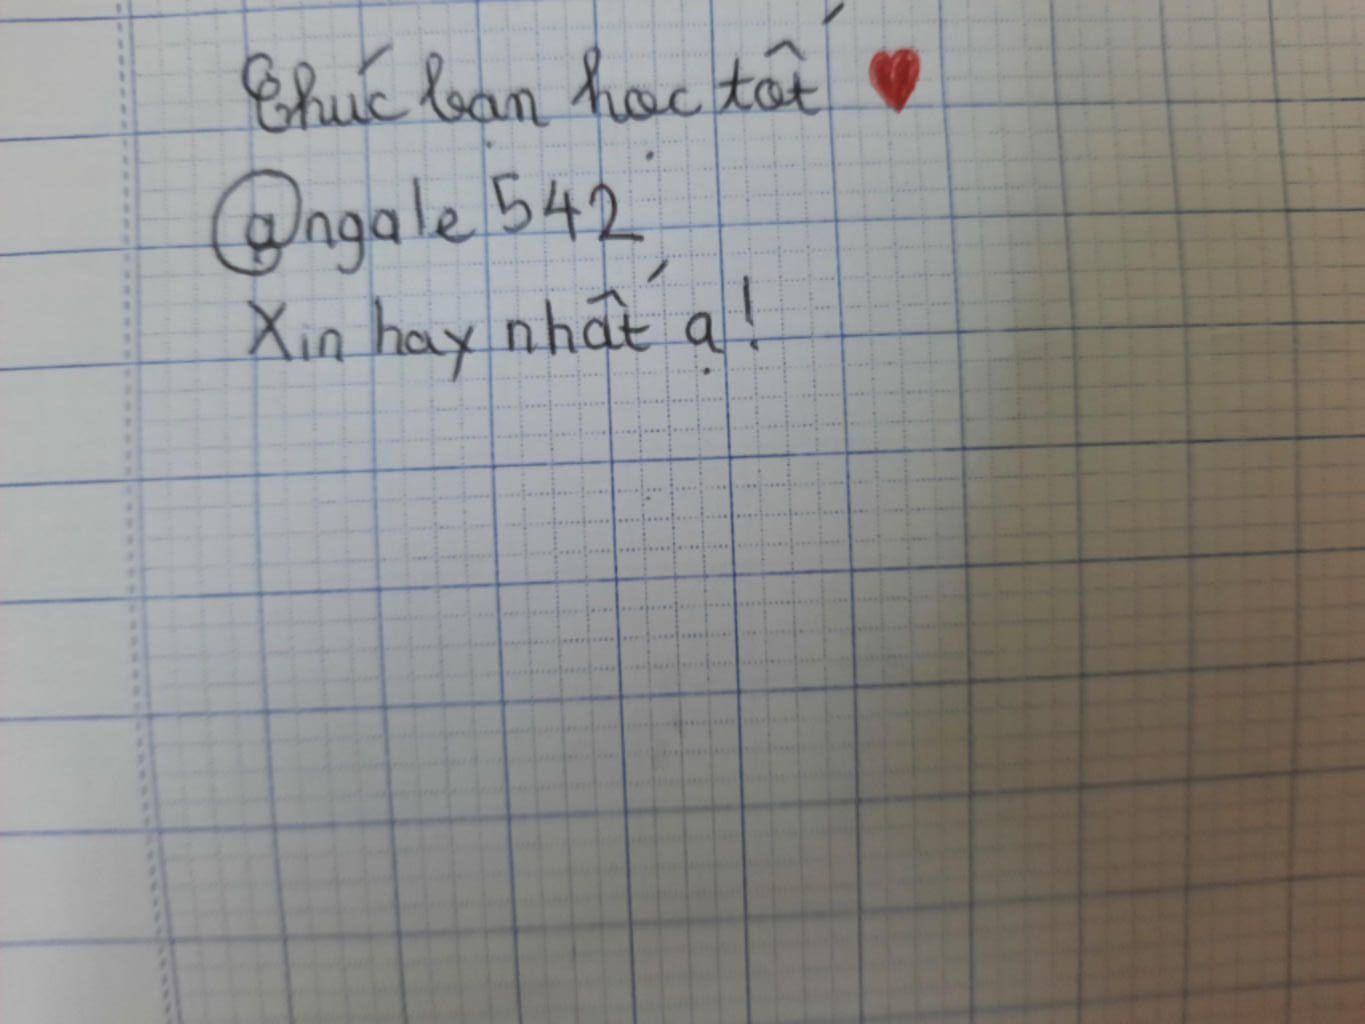 Chúc bạn học tốt ♥
@ngale 542
Xin hay nhất ạ!